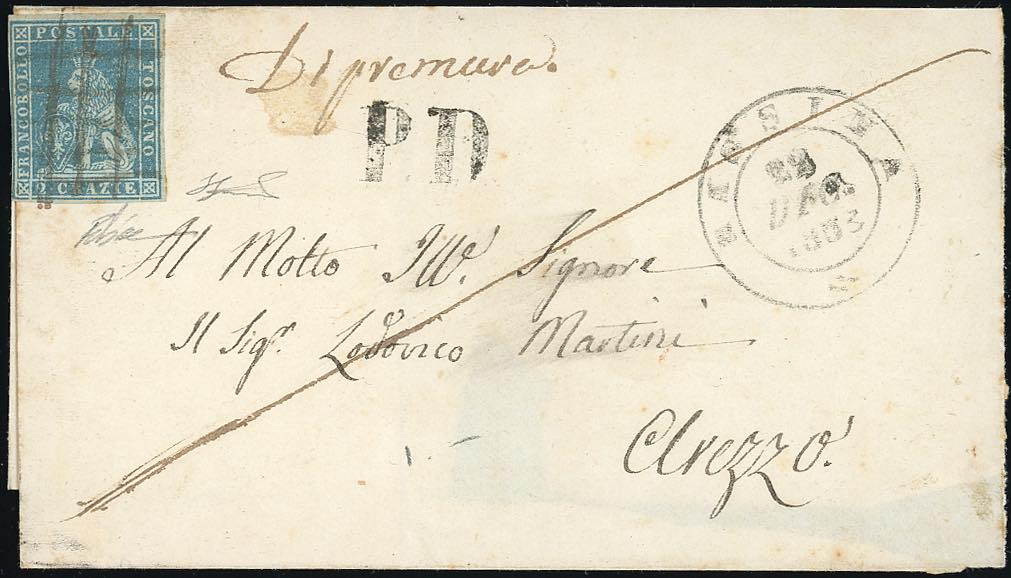 FRANCOBOLLO POSTALE TOSCANO
2 CRAZIE
Di premura.
P.D
RASSINA
22
DIC
1853
Al Molto Ill.e Signore
Il Sigr. Lodovico Martini
Arezzo